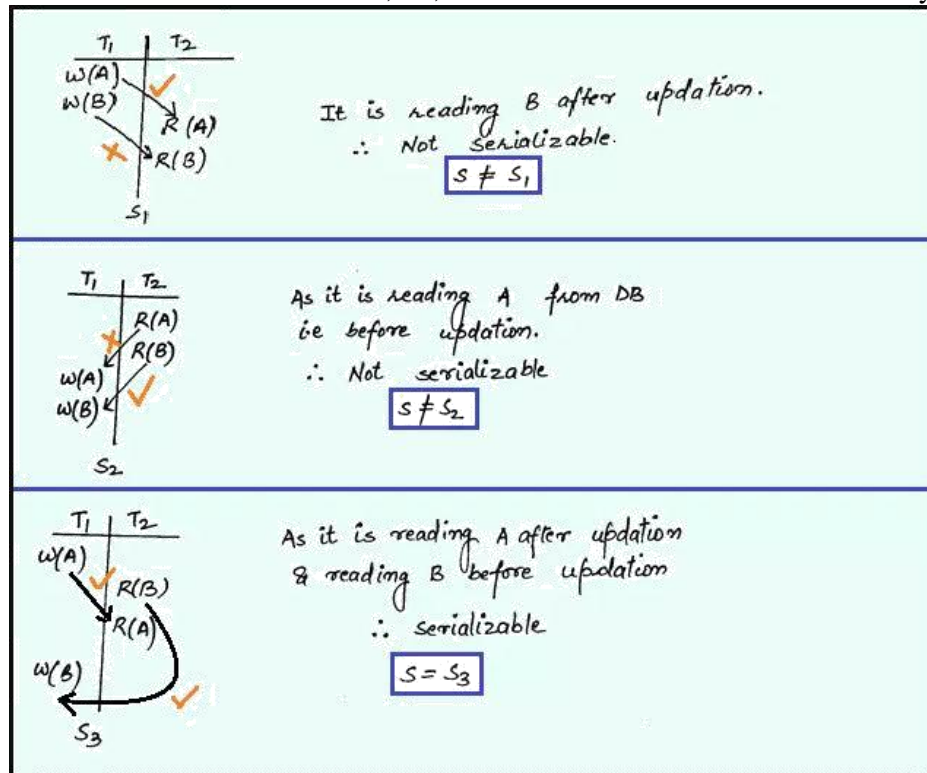 T1 T2
W(A)
W(B)
R(A)
R(B)
S1
It is reading B after updation.
∴ Not serializable.
S ≠ S1
T1 T2
R(A)
R(B)
W(A)
W(B)
S2
As it is reading A from DB
ie before updation.
∴ Not serializable
S ≠ S2
T1 T2
W(A)
R(B)
R(A)
W(B)
S3
As it is reading A after updation
& reading B before updation
∴ serializable
S = S3